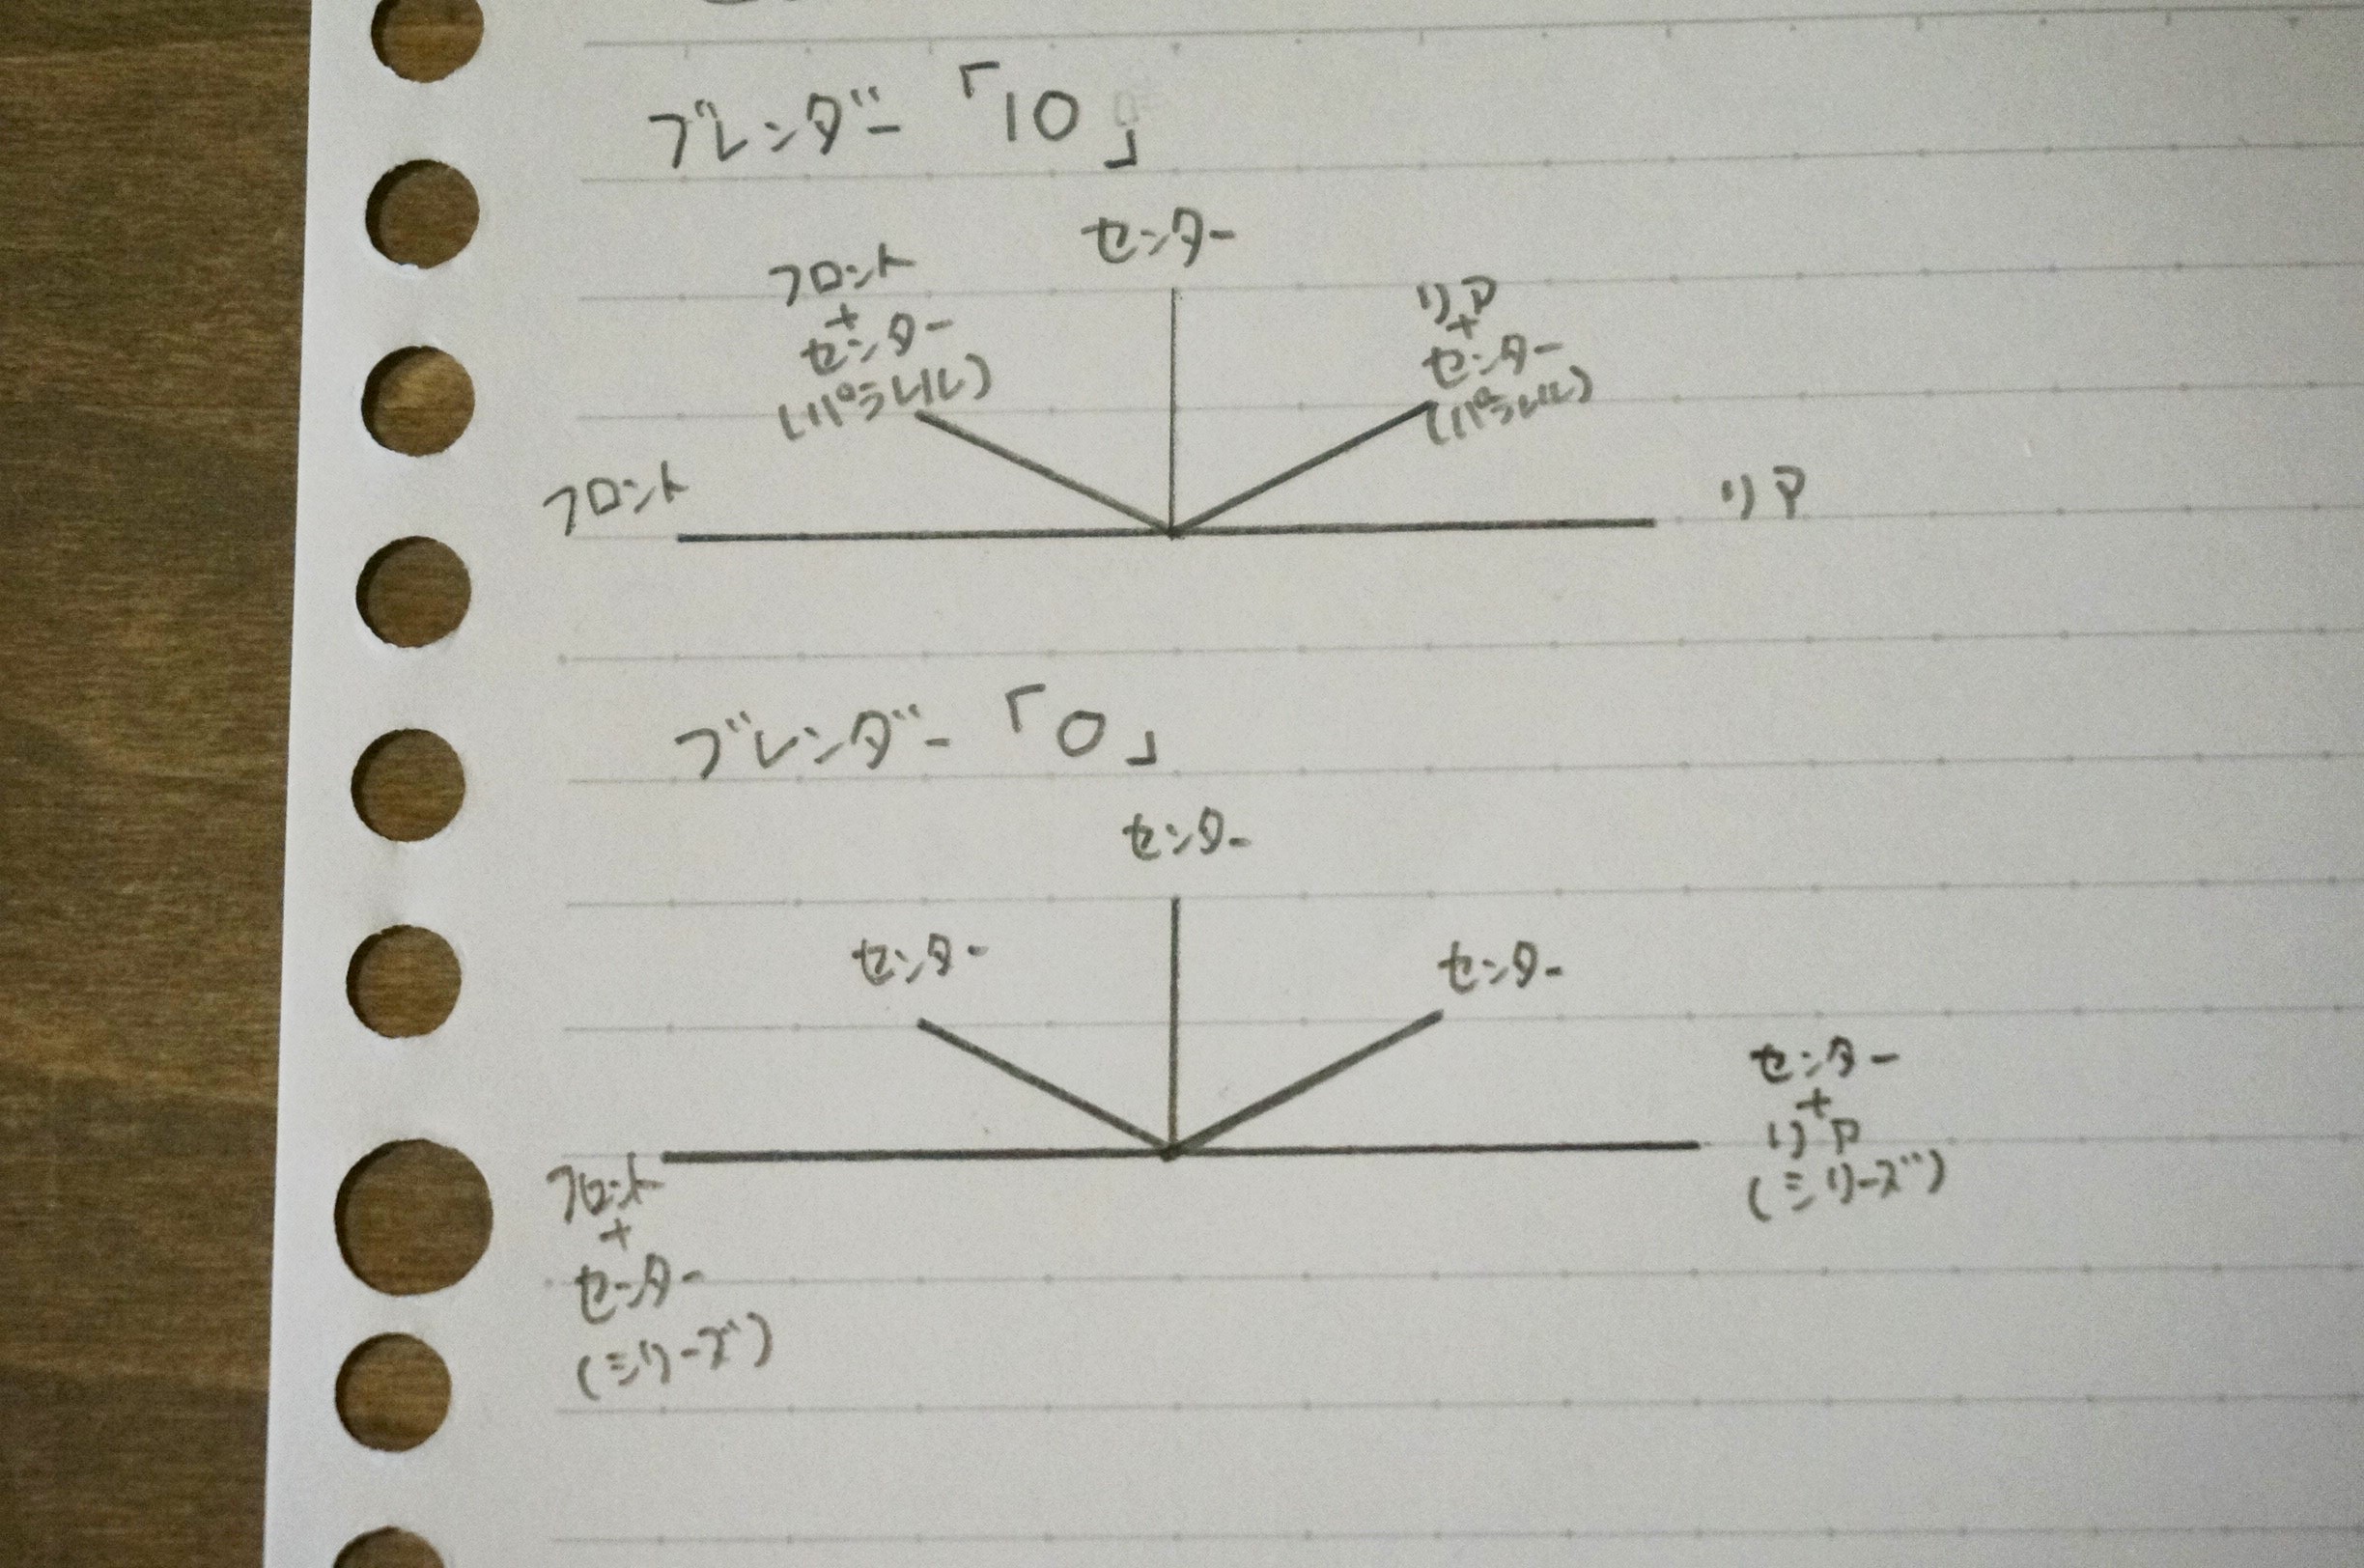 ブレンダー「10」
センター
フロント
+
センター
(パラレル)
リア
+
センター
(パラレル)
フロント
リア
ブレンダー「0」
センター
センター
センター
センター
+
リア
(シリーズ)
フロント
+
センター
(シリーズ)